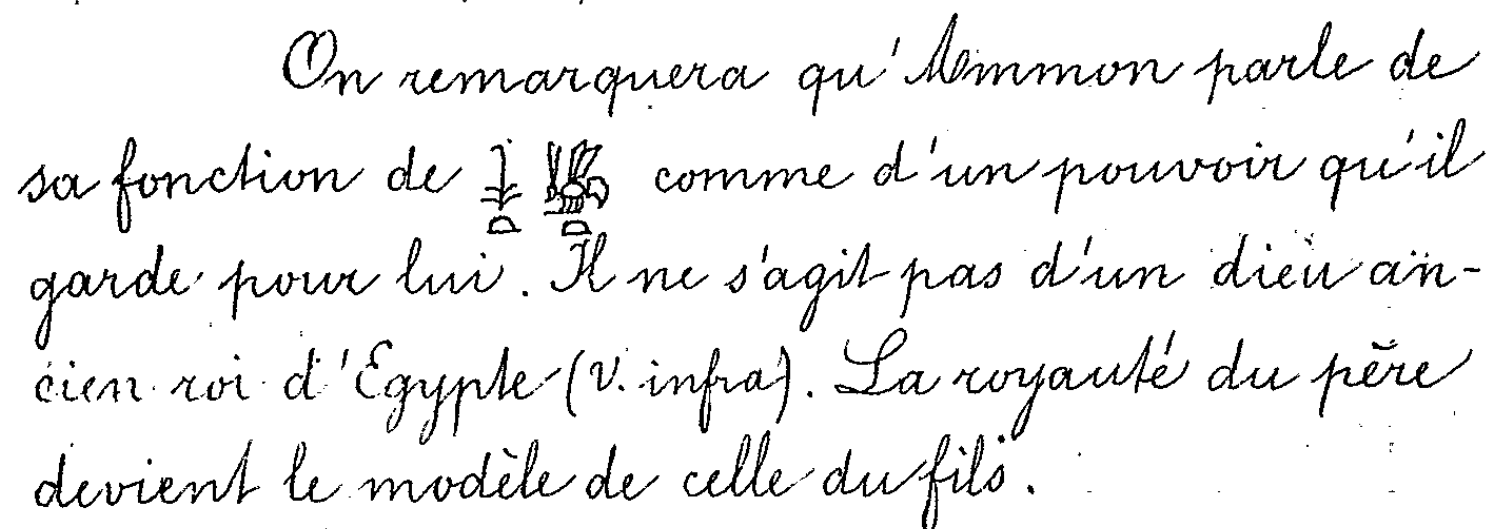 On remarquera qu'Ammon parle de
sa fonction de 𓇓𓏏 𓆤𓏏 comme d'un pouvoir qu'il
garde pour lui. Il ne s'agit pas d'un dieu an-
cien roi d'Egypte (V. infra). La royauté du père
devient le modèle de celle du fils.